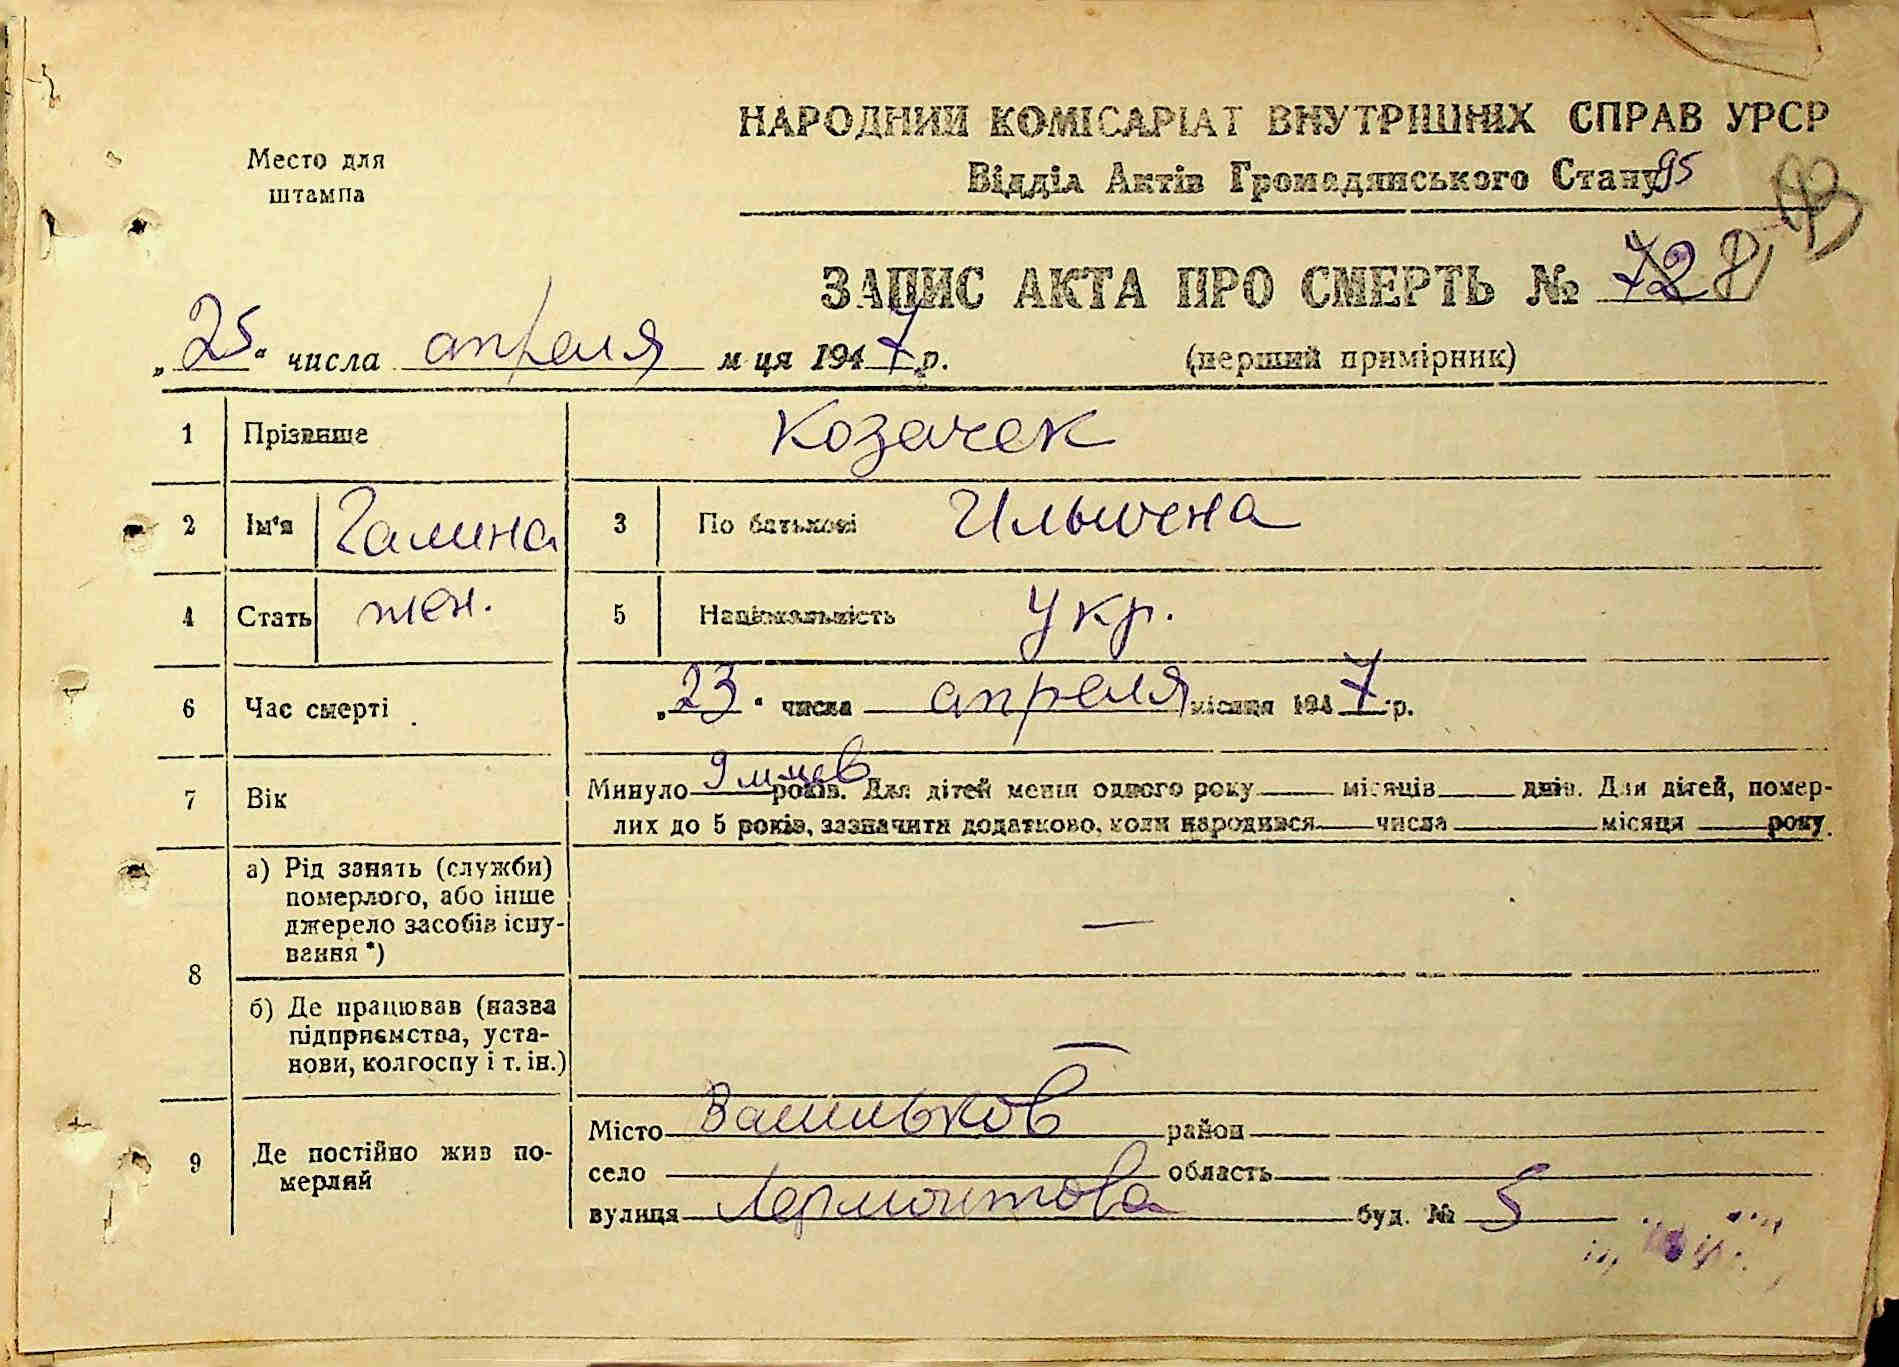 НАРОДНИЙ КОМІСАРІАТ ВНУТРІШНІХ СПРАВ УРСР
Место для
штампа
Відділ Актів Громадянського Стану 95
93
ЗАПИС АКТА ПРО СМЕРТЬ № 72 81
„25“ числа апреля м-ця 1947 р. (перший примірник)
1 Прізвище Козачек
2 Ім'я Галина 3 По батькові Ильична
4 Стать жен. 5 Національність Укр.
6 Час смерті „23“ числа апреля місяця 1947 р.
7 Вік Минуло 9 м-цев років. Для дітей менш одного року місяців днів. Для дітей, помер-
лих до 5 років, зазначити додатково, коли народився числа місяця року
8 а) Рід занять (служби)
померлого, або інше
джерело засобів існу-
вання *) —
б) Де працював (назва
підприємства, уста-
нови, колгоспу і т. ін.) —
9 Де постійно жив по-
мерлий
Місто Васильков район
село область
вулиця Лермонтова буд. № 5